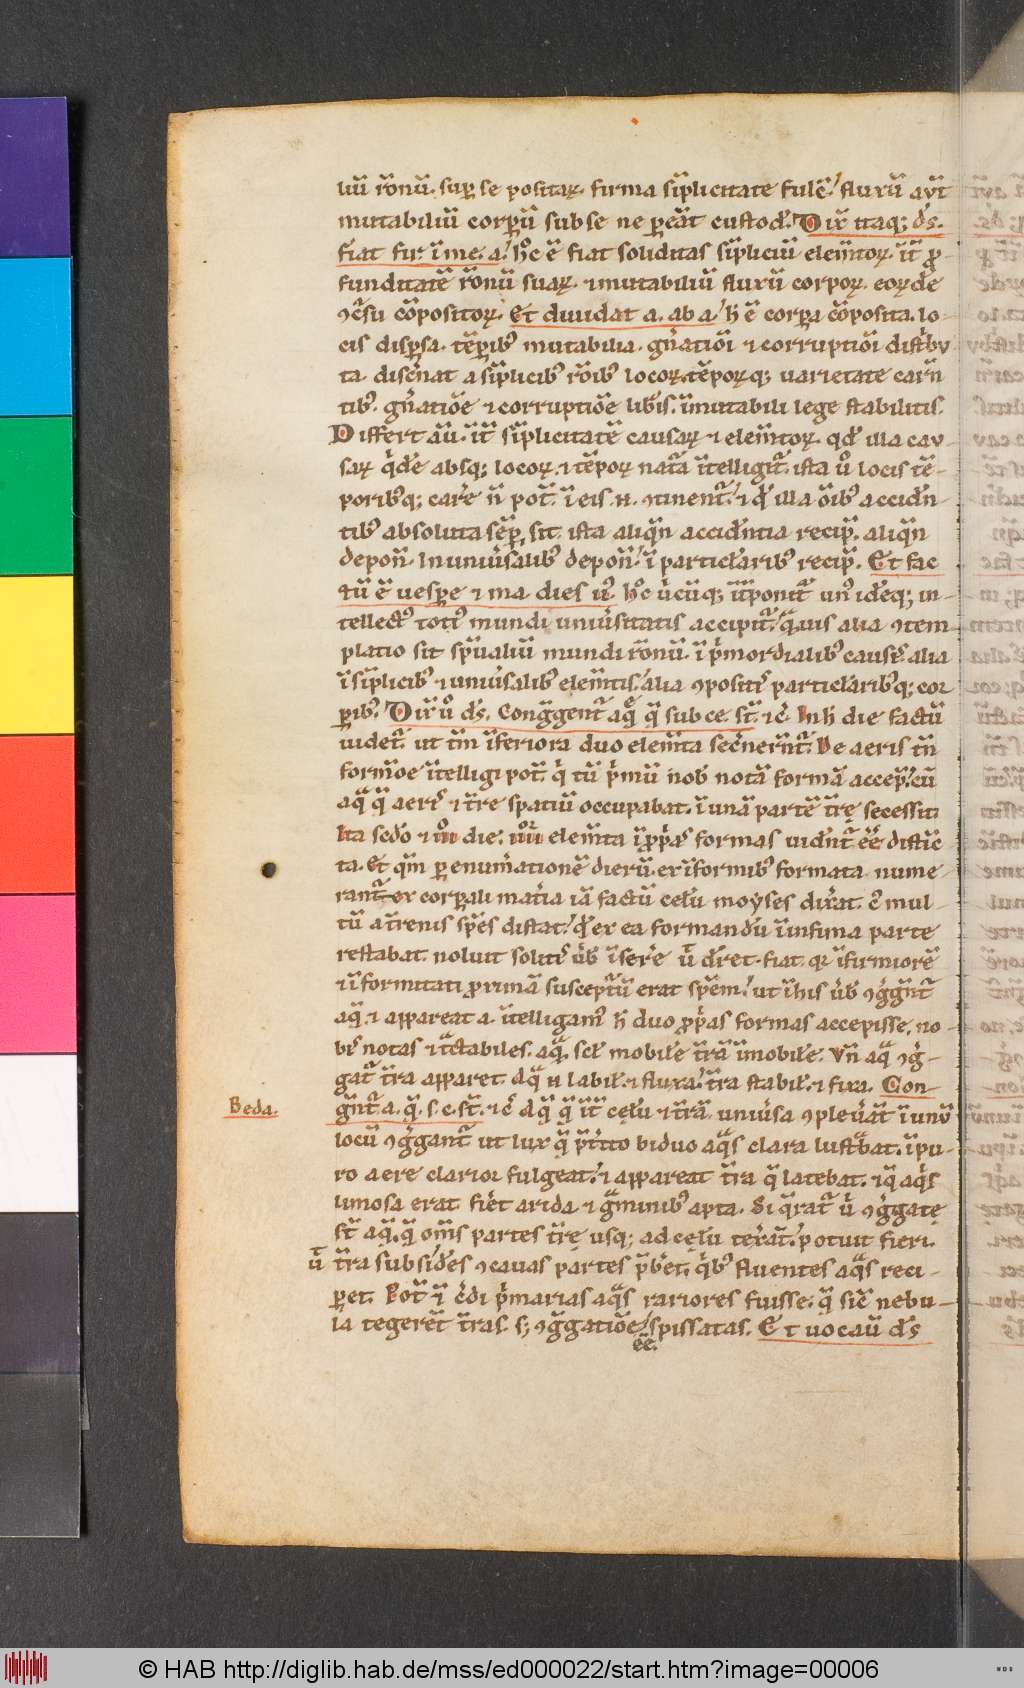 liũ rõnũ. sup se positaꝝ. firma sĩplicitate fulc̃ / fluxũ aut̃
mutabiliũ corpoꝝ sub se ne peat custod. Dix̃ itaq; ds.
fiat fir. ĩ me. a. / hͦc ẽ fiat soliditas sĩpliciũ elem̃toꝝ. ĩt̃ ꝓ
funditatẽ rõnũ suaꝝ. ⁊ imutabiliũ fluxũ corpoꝝ. eoꝝdẽ
ꝯc̃su cõpositoꝝ. Et diuidat a. ab a / h̃ ẽ corpa cõposita. lo-
cis dispsa. tẽpibꝰ mutabilia. gñatiõi ⁊ corruptiõi distbu
ta. discñat a sĩplicibꝰ rõibꝰ locoꝝ tẽpoꝝq; uarietate carñ
tibꝰ. gñatiõe ⁊ corruptiõe lib̃is. ĩmutabili lege stabilitis.
Differt aũ. ĩt̃ sĩplicitatẽ causaꝝ ⁊ elem̃toꝝ. qd̃ illa cau-
saꝝ q̃dẽ absq; locoꝝ. ⁊ tẽpoꝝ nat̃a ĩtelligit̃. ista ũ locis tẽ-
poribꝰq; carẽ ñ pot̃. ĩ eis .n. ꝯtinent̃ / ⁊ qd̃ illa õibꝰ accidñ
tibꝰ absoluta sẽp sit. ista aliqñ accidñtia recip̃. aliqñ
depoñ. In uniũsalibꝰ depoñ / ĩ particl̃aribꝰ recip̃. Et fac
tũ ẽ uespe ⁊ ma dies iiꝰ. hͦc ũcũq; ĩt̃ponit̃ unꝰ idẽq; in-
tellectꝰ totiꝰ mundi uniũsitatis accipit̃ / q̃uis alia ꝯtem
platio sit sp̃ualiũ mundi rõnũ. ĩ p̃mordialibꝰ causis / alia
ĩ sĩplicibꝰ ⁊ uniũsalibꝰ elem̃tis / alia ꝯpositis particl̃aribꝰq; cor
pibꝰ. Dix̃ ũ ds. Congg̃ent̃ aq̃ q̃ sub ce. st̃. ⁊ c̃. In h̃ die factũ
uidet̃. ut tm̃ ĩferiora duo elem̃ta secñernt̃. De aeris tñ
formõe ĩtelligi pot̃. q̃ tũ p̃mũ nob̃ notã formã accep̃ / cũ
aq̃ q̃ aeris ⁊ t̃re spatiũ occupabat. ĩ unã partẽ t̃rę secessit.
Ita scdo ⁊ iiiͦ die. iiiiͦʳ elem̃ta ĩ ꝓp̃as formas uidñt̃ ẽẽ distĩc
ta. Et qm̃ p enum̃ationẽ dierũ. ex ĩformibꝰ formata nume
rant̃ ex corpali mat̃ia iã factũ celũ moyses dix̃at. c̃ mul-
tũ a t̃renis sp̃es distat / qd̃ ex ea formandũ ĩ infima parte
restabat. noluit solitis ũb̃ ĩserẽ ũ dr̃et. fiat. qr ĩfirmiorẽ
⁊ ĩformitati ꝓximã susceptũ erat sp̃em / ut ĩ his ũb̃ ꝯgg̃nt̃
aq̃. ⁊ appareat a. ĩtelligamꝰ h̃ duo ꝓp̃as formas accepisse. no-
bis notas ⁊ t̃ctabiles. aq̃. scl̃ mobilẽ t̃rã ĩmobilẽ. Vñ aq̃ ꝯg̃-
gat̃ t̃ra apparet. aq̃ .n. labil̃. ⁊ fluxa / t̃ra stabil̃. ⁊ fixa. Con-
Beda.
gg̃nt̃ a. q̃. s. c. st̃. ⁊ c̃ aq̃ q̃ ĩt̃ cęlũ ⁊ t̃rã uniũsa ꝯpleũat̃ ĩ unũ
locũ ꝯg̃gant̃ ut lux q̃ p̃t̃ito biduo aq̃s clara lust̃bat. ĩ pu-
ro aere clarior fulgeat / ⁊ appareat t̃ra q̃ latebat. ⁊ q̃ aq̃s
limosa erat fiẽt arida ⁊ g̃minibꝰ apta. Si q̃rat̃ ũ ꝯg̃gatę
st̃ aq̃. q̃ om̃s partes t̃rę usq; ad cęlũ tex̃at̃ / potuit fieri.
ũ t̃ra subsidẽs ꝯcauas partes p̃bẽt. q̃bꝰ fluentes aq̃s reci-
pet. Pot̃ ⁊ c̃di p̃marias aq̃s rariores fuisse. q̃ sic̃ nebu-
la tegeret̃ t̃ras. s; ꝯg̃gatiõe / spissatas. Et uocauit ds
ẽẽ.
© HAB http://diglib.hab.de/mss/ed000022/start.htm?image=00006